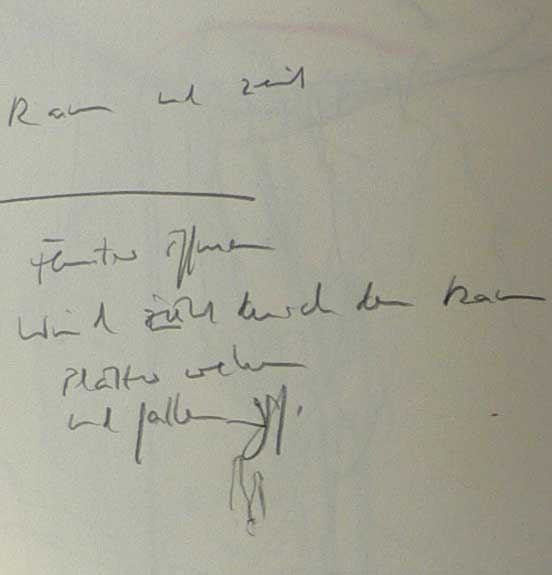 Raum und Zeit
Fenster öffnen
Wind zieht durch den Raum
Blätter wehen
und fallen